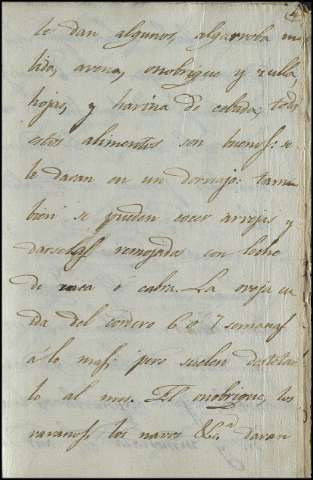 le dan algunos, algarroba mo
lida, avena, onobrique y zulla,
hojas, y harina de cebada, todos
estos alimentos son buenos: se
le daran en un dornajo: tam
bien se pueden cocer arvejas y
darselas remojadas con leche
de vaca o cabra. La oveja cu
ida del cordero 6 o 7 semanas
á lo mas: pero suelen destetar
lo al mes. El onobrique, los
ravanos los navos &c.ª daran